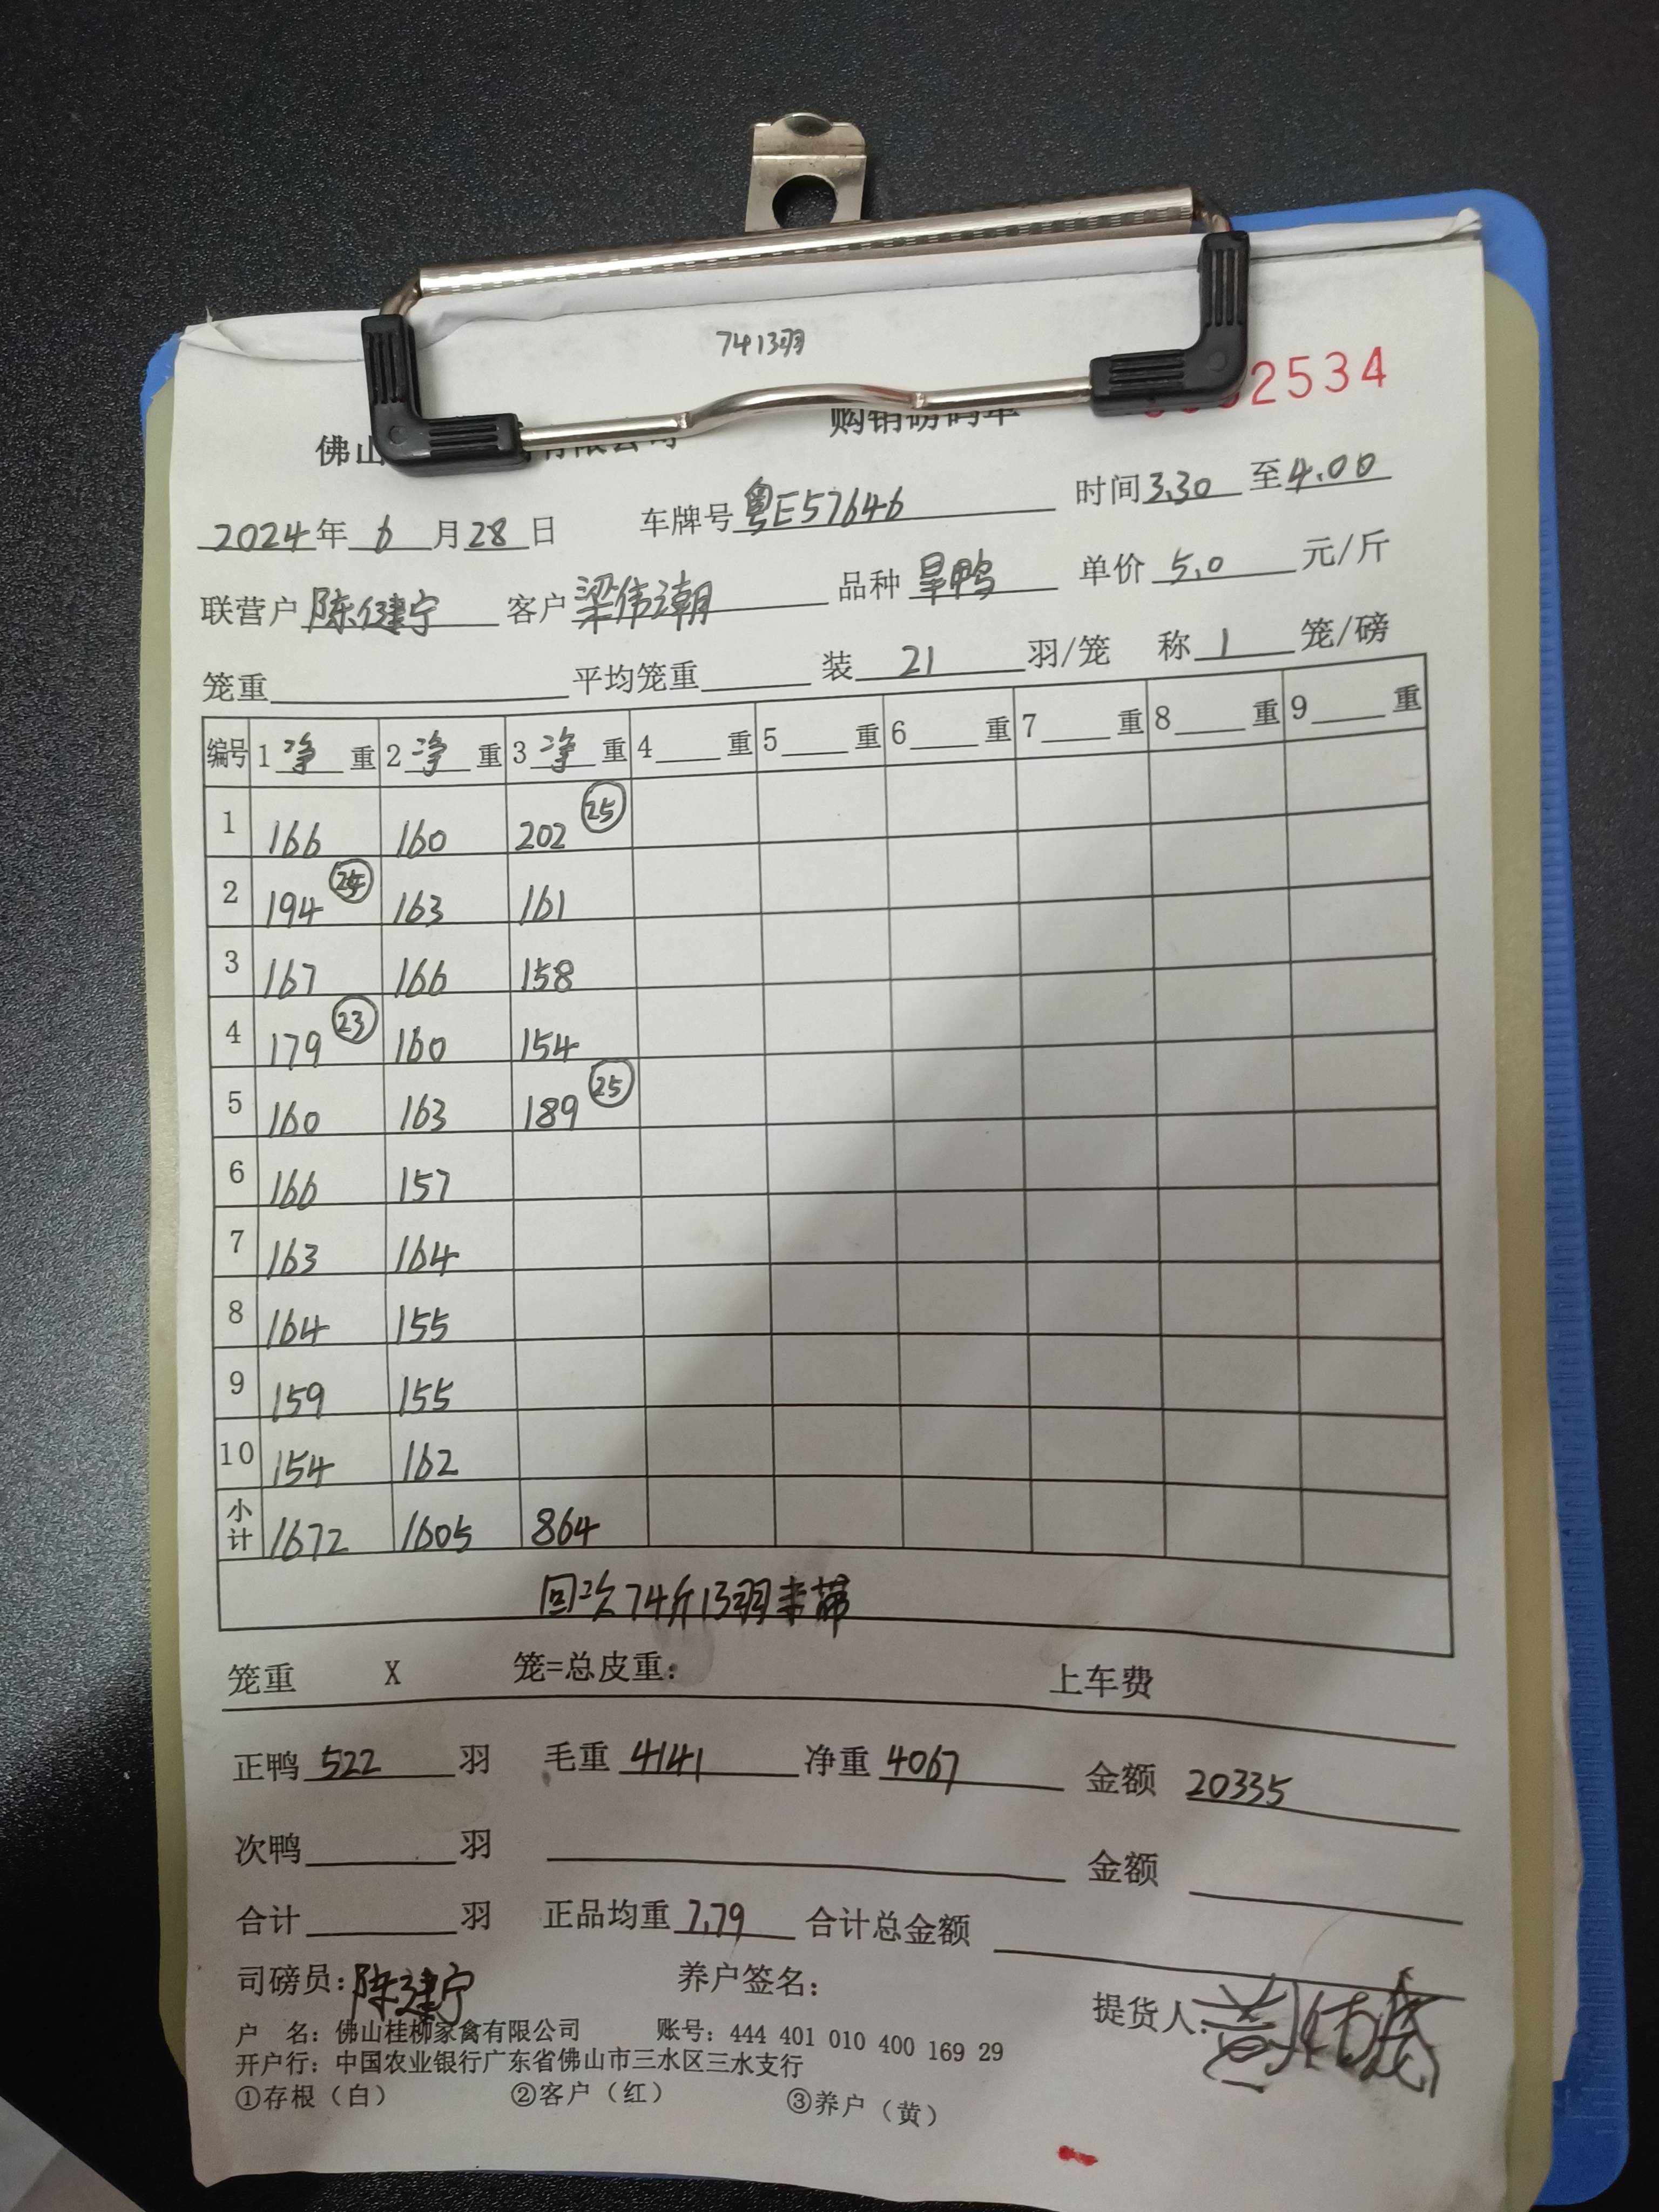 7413羽
佛山 有限公司 购销磅码单 2534
2024年 6 月28 日 车牌号粤E57646 时间3.30 至4.00
联营户 陈健宁 客户梁伟潮 品种 旱鸭 单价 5.0 元/斤
笼重 平均笼重 装 21 羽/笼 称 1 笼/磅
编号 1 净 重 2 净 重 3 净 重 4 重 5 重 6 重 7 重 8 重 9 重
1 166 160 202 25
2 194 163 161
3 167 166 158
4 179 23 160 154
5 160 163 189 25
6 166 157
7 163 164
8 164 155
9 159 155
10 154 162
小计 1672 1605 864
回次74斤13羽未带
笼重 X 笼=总皮重: 上车费
正鸭 522 羽 毛重 4141 净重 4067 金额 20335
次鸭 羽 金额
合计 羽 正品均重 7.79 合计总金额
司磅员:陈建宁 养户签名: 提货人:
户 名: 佛山桂柳家禽有限公司 账号: 444 401 010 400 169 29
开户行: 中国农业银行广东省佛山市三水区三水支行
①存根（白） ②客户（红） ③养户（黄）